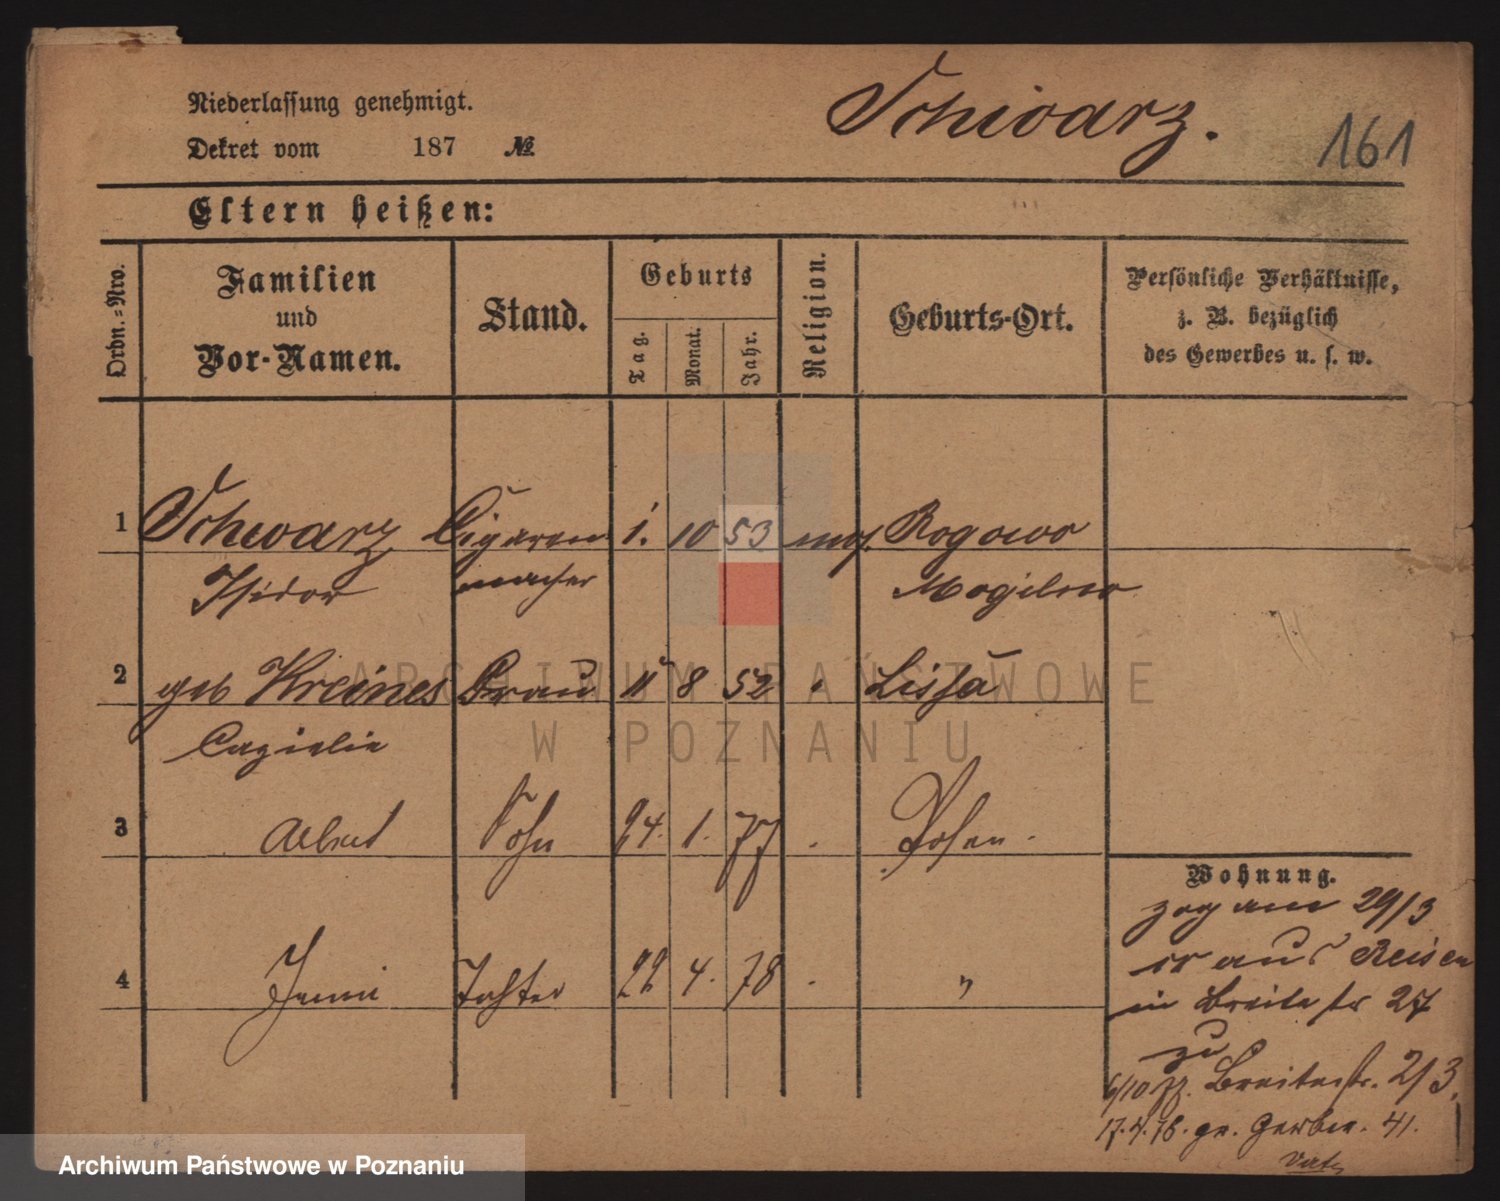 Niederlassung genehmigt.
Dekret vom 187 №
Schwarz.
161
Eltern heißen:
Ordn.-Nro.
Familien
und
Vor-Namen.
Stand.
Geburts
Tag.
Monat.
Jahr.
Religion.
Geburts-Ort.
Persönliche Verhältnisse,
z. B. bezüglich
des Gewerbes u. s. w.
1 Schwarz Cigarren 1. 10 53 mos. Rogowo
Isidor macher Mogilno
2 geb Kreines Frau 11 8 52 " Lissa
3 Albert Sohn 24. 1. 77 . Posen.
4 Jenni Tochter 22 4. 78 . "
Wohnung.
zog am 29/3
er aus Reisen
in Breite str 27
zu
6/10 77. Breitestr. 2/3.
17.4.78. gr. Gerber. 41.
ARCHIWUM PAŃSTWOWE
W POZNANIU
Archiwum Państwowe w Poznaniu